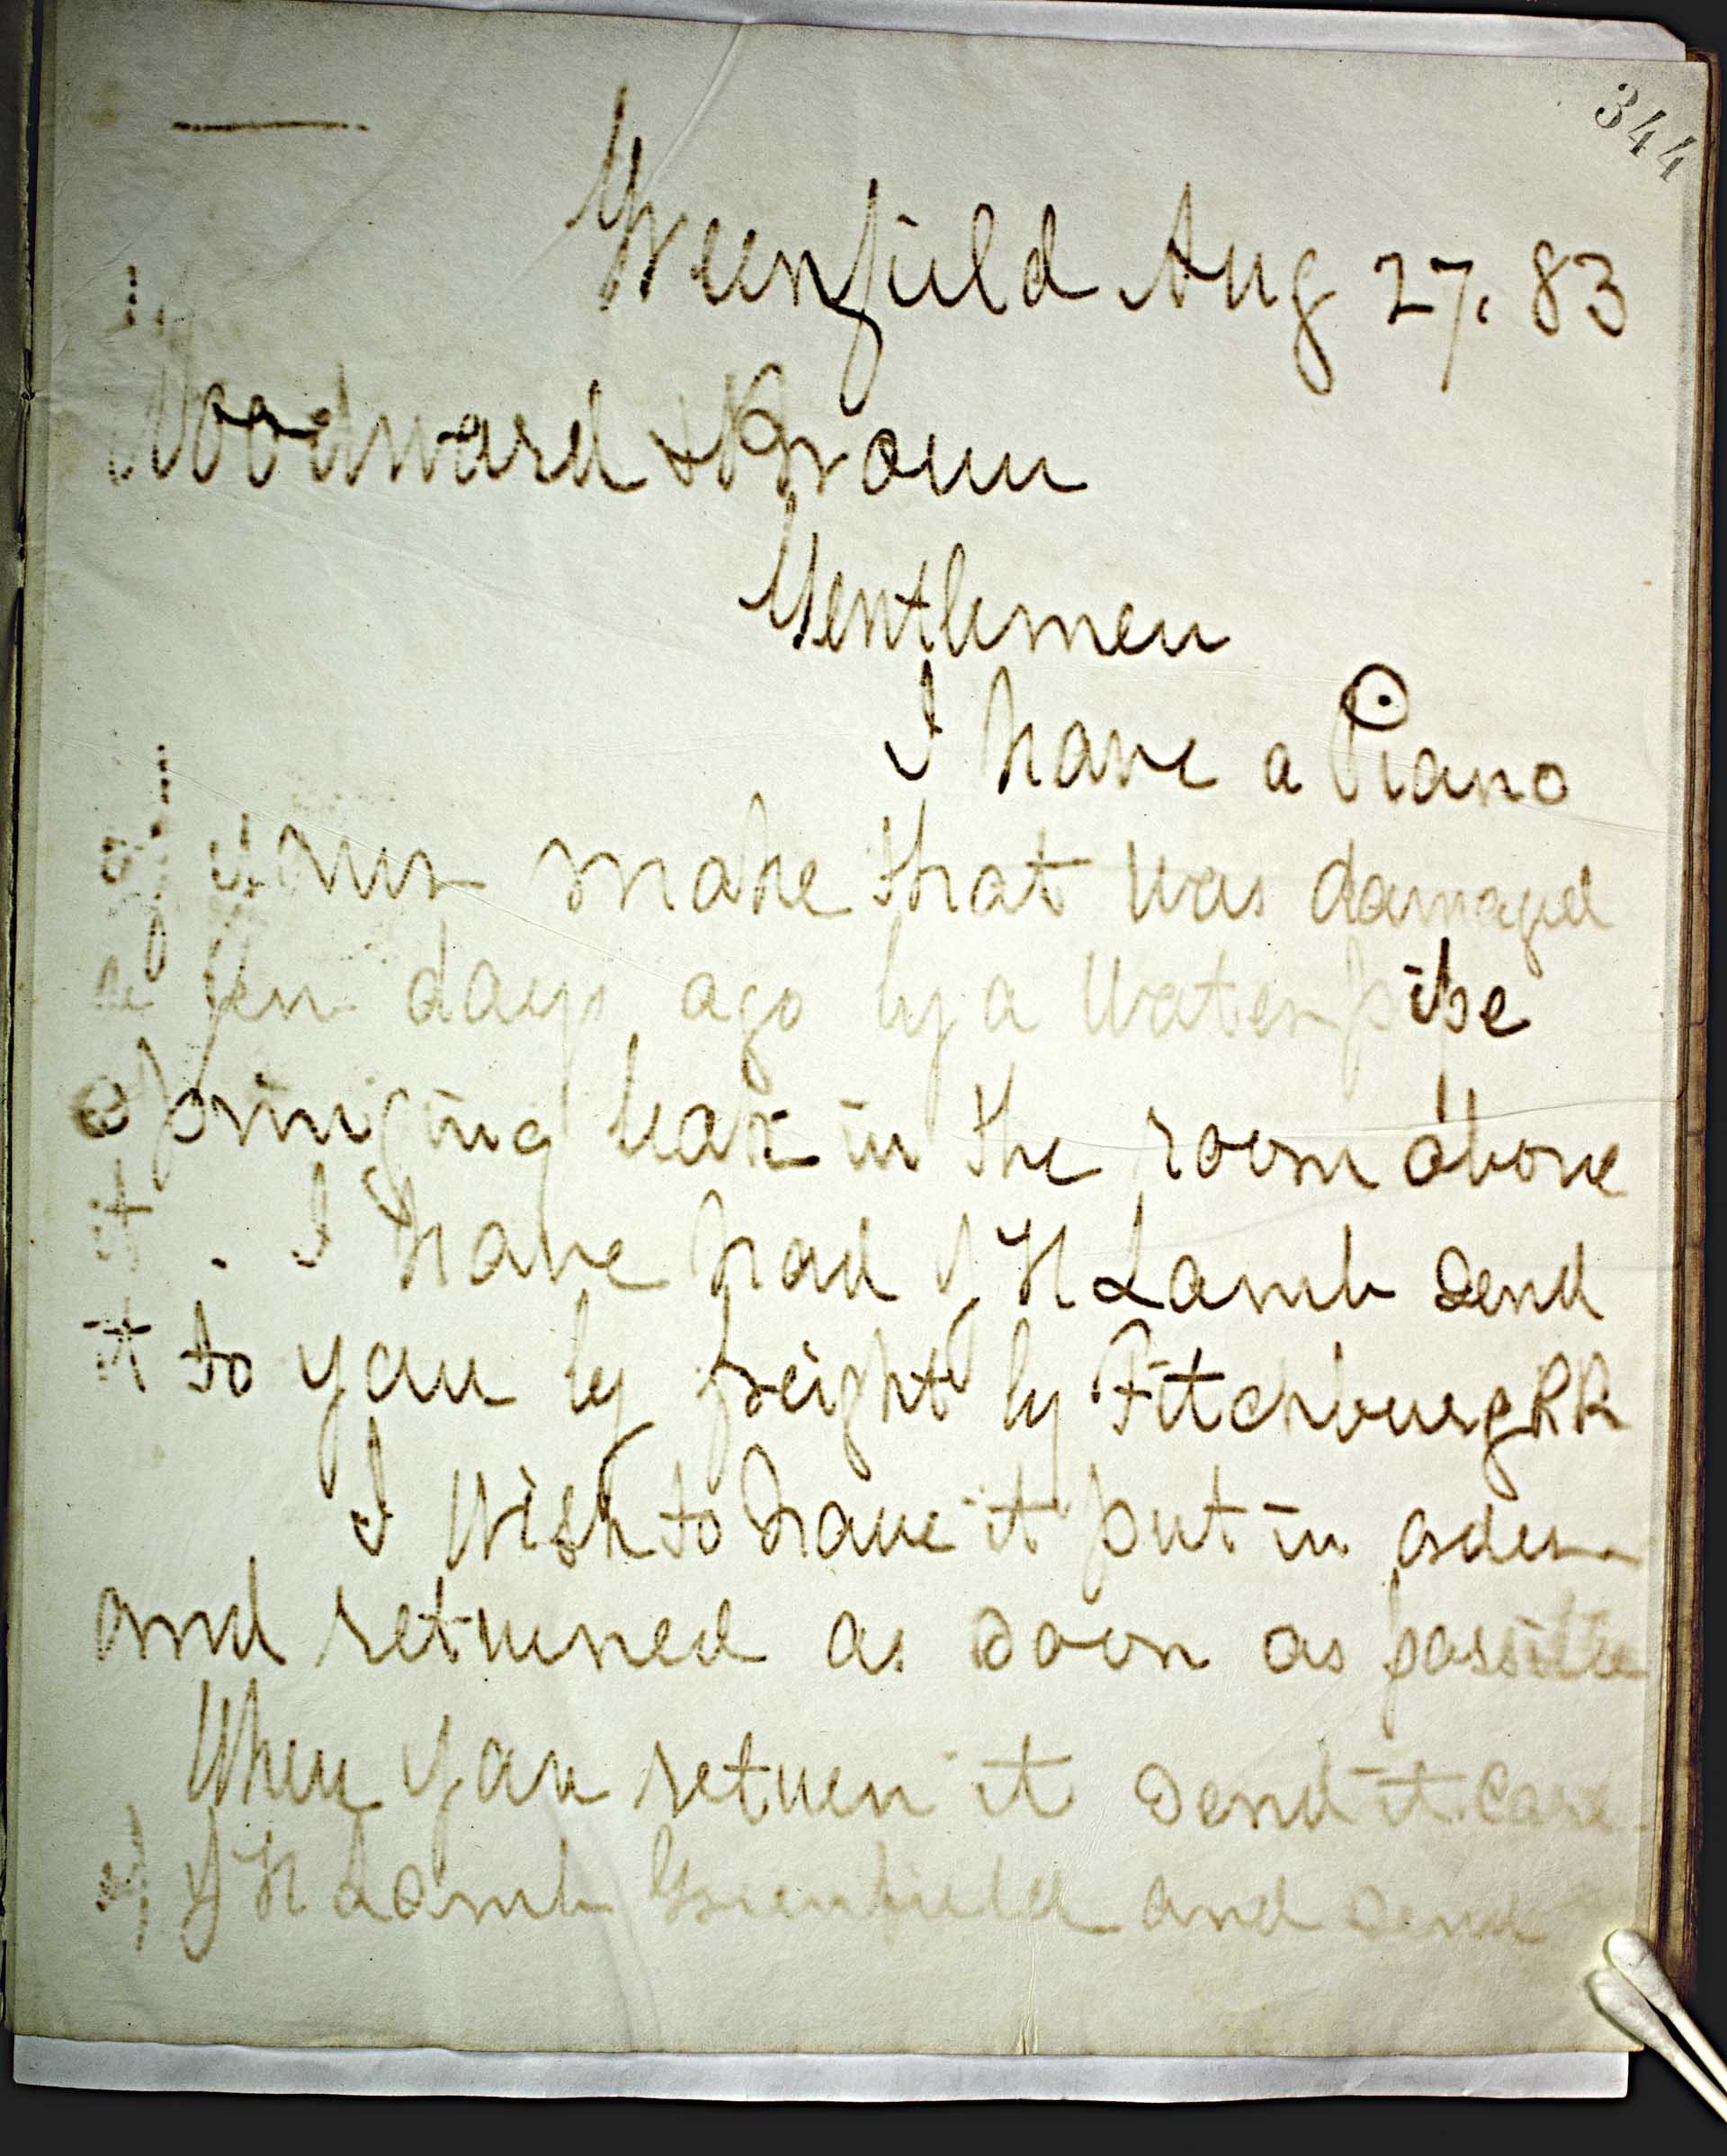 344
Greenfield Aug 27. 83
Woodward & Brown
Gentlemen
I have a Piano
of your make that was damaged
a few days ago by a water pipe
springing leak in the room above
it. I have had J H Lamb send
it to you by freight by Fitchburg RR
I wish to have it put in order
and returned as soon as possible
When you return it send it care
of J H Lamb Greenfield and send